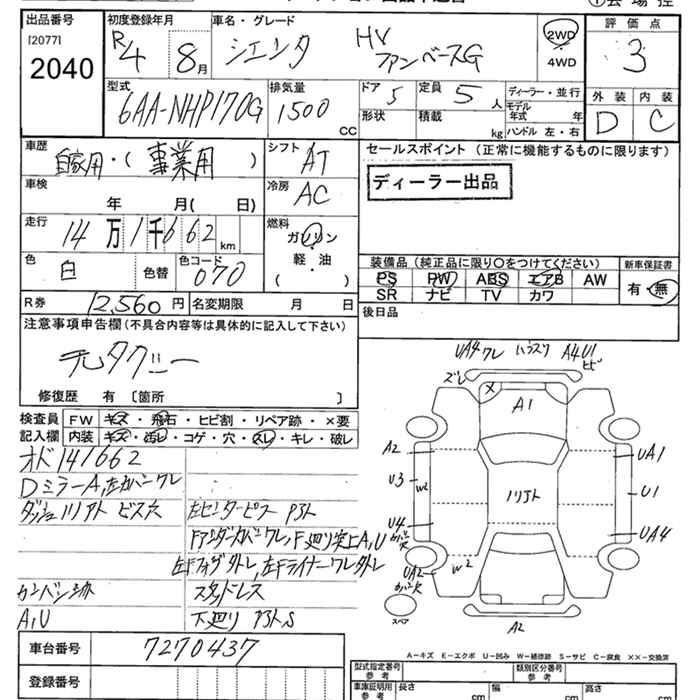 出品番号
[2077]
2040
初度登録年月
R4 8月
車名・グレード
シエンタ HV ファンベースG
2WD
4WD
評価点
3
外装 内装
D C
型式
6AA-NHP170G
排気量
1500 cc
ドア 5
形状
定員 5人
積載 kg
ディーラー・並行
モデル年式 年
ハンドル 左・右
車歴
自家用・(事業用)
シフト AT
車検 年 月( 日)
冷房 AC
走行
14万1千662 km
燃料
ガソリン
軽・油
( )
色 白 色替
色コード 070
R券 12,560円 名変期限 月 日
セールスポイント (正常に機能するものに限ります)
ディーラー出品
装備品 (純正品に限り○をつけてください)
PS PW ABS エアB AW
SR ナビ TV カワ
新車保証書
有・無
後日品
注意事項申告欄(不具合内容等は具体的に記入して下さい)
元タクシー
修復歴 有 〔箇所 〕
検査員記入欄
FW キズ・飛石・ヒビ割・リペア跡・×要
内装 キズ・汚レ・コゲ・穴・スレ・キレ・破レ
オド141662
DミラーA,左カバーワレ
ダッシュリアト ビスネ
左センターピラー P3ト
スタッドレス
A,U
下廻り P3トS
UA4ワレ
A4U1
ヒビ
ズレ
A1
A2
U3
W2
U4
UA2
W2
UA1
U1
UA4
スペア
A2
A-キズ E-エクボ U-凹み W-補修跡 S-サビ C-腐食 XX-交換済
車台番号 7270437
登録番号
型式指定番号
参考
類別区分番号
参考
車庫証明用
参考
長さ cm 幅 cm 高さ cm